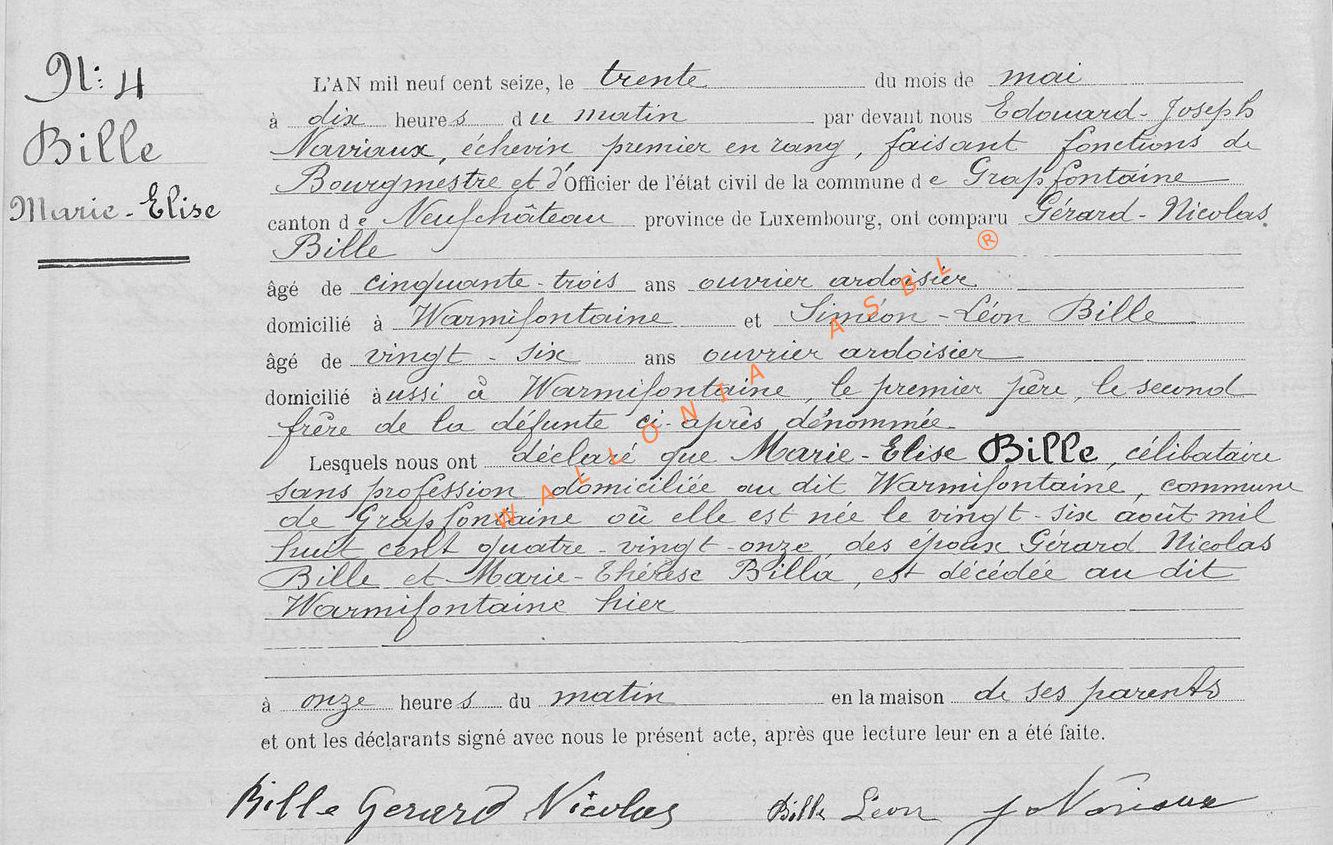 N°: 4
Bille
Marie-Elise
L'AN mil neuf cent seize, le trente du mois de mai
à dix heures du matin par devant nous Edouard-Joseph
Naviaux, échevin premier en rang, faisant fonctions de
Bourgmestre et d'Officier de l'état civil de la commune de Grapfontaine
canton de Neufchâteau province de Luxembourg, ont comparu Gérard-Nicolas
Bille
âgé de cinquante-trois ans ouvrier ardoisier
domicilié à Warmifontaine et Siméon-Léon Bille
âgé de vingt-six ans ouvrier ardoisier
domicilié aussi à Warmifontaine, le premier père, le second
frère de la défunte ci-après dénommée
Lesquels nous ont déclaré que Marie-Elise Bille, célibataire
sans profession domiciliée au dit Warmifontaine, commune
de Grapfontaine où elle est née le vingt-six août mil
huit cent quatre-vingt-onze, des époux Gérard Nicolas
Bille et Marie-Thérèse Billa, est décédée au dit
Warmifontaine hier
à onze heures du matin en la maison de ses parents
et ont les déclarants signé avec nous le présent acte, après que lecture leur en a été faite.
Bille Gerard Nicolas Bille Léon J Naviaux
WALLONIA ASBL ®